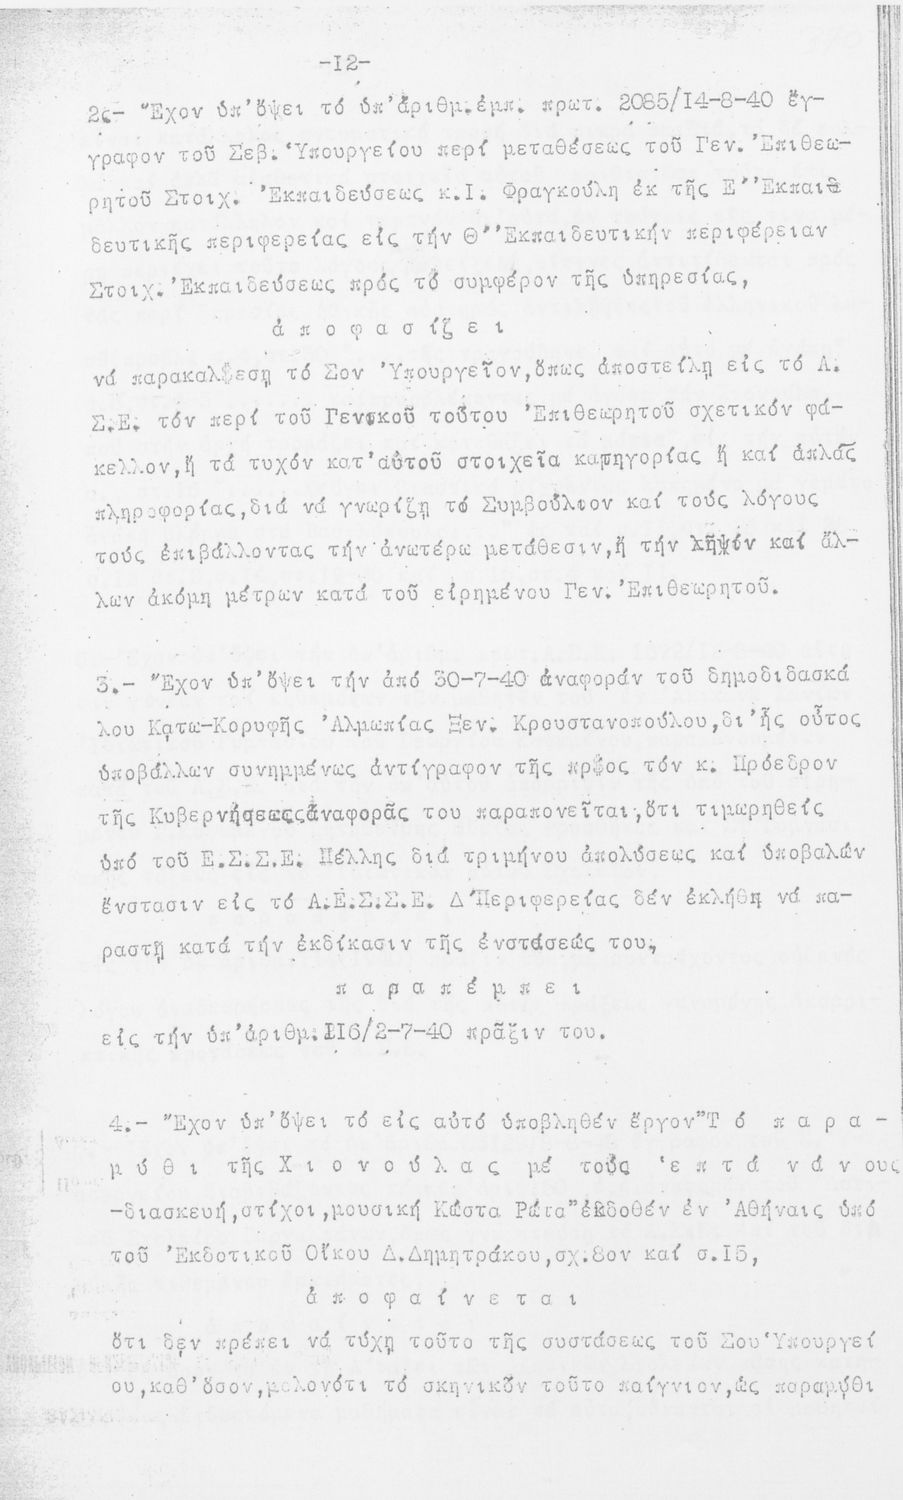 -12-
2ς- Ἔχον ὑπ'ὄψει τό ὑπ'ἀριθμ.ἐμπ. πρωτ. 2085/14-8-40 ἔγ-
γραφον τοῦ Σεβ. Ὑπουργείου περί μεταθέσεως τοῦ Γεν. Ἐπιθεω-
ρητοῦ Στοιχ. Ἐκπαιδεύσεως κ.Ι. Φραγκούλη ἐκ τῆς Ε' Ἐκπαι
δευτικῆς περιφερείας εἰς τήν Θ' Ἐκπαιδευτικήν περιφέρειαν
Στοιχ. Ἐκπαιδεύσεως πρός τό συμφέρον τῆς ὑπηρεσίας,
ἀ π ο φ α σ ί ζ ε ι
νά παρακαλέσῃ τό Σον Ὑπουργεῖον,ὅπως ἀποστείλῃ εἰς τό Α.
Σ.Ε. τόν περί τοῦ Γενικοῦ τούτου Ἐπιθεωρητοῦ σχετικόν φά-
κελλον,ἤ τά τυχόν κατ'αὐτοῦ στοιχεῖα κατηγορίας ἤ καί ἁπλᾶς
πληροφορίας,διά νά γνωρίζῃ τό Συμβούλιον καί τούς λόγους
τούς ἐπιβάλλοντας τήν ἀνωτέρω μετάθεσιν,ἤ τήν λῆψιν καί ἄλ-
λων ἀκόμη μέτρων κατά τοῦ εἰρημένου Γεν. Ἐπιθεωρητοῦ.
3.- Ἔχον ὑπ'ὄψει τήν ἀπό 30-7-40 ἀναφοράν τοῦ δημοδιδασκά
λου Κατω-Κορυφῆς Ἀλμωπίας Ξεν. Κρουστανοπούλου,δι'ἧς οὗτος
ὑποβάλλων συνημμένως ἀντίγραφον τῆς πρός τόν κ. Πρόεδρον
τῆς Κυβερνήσεως ἀναφορᾶς του παραπονεῖται,ὅτι τιμωρηθείς
ὑπό τοῦ Ε.Σ.Σ.Ε. Πέλλης διά τριμήνου ἀπολύσεως καί ὑποβαλών
ἔνστασιν εἰς τό Α.Ε.Σ.Σ.Ε. Δ'Περιφερείας δέν ἐκλήθη νά πα-
ραστῇ κατά τήν ἐκδίκασιν τῆς ἐνστάσεώς του,
π α ρ α π έ μ π ε ι
εἰς τήν ὑπ'ἀριθμ.116/2-7-40 πρᾶξιν του.
4.- Ἔχον ὑπ'ὄψει τό εἰς αὐτό ὑποβληθέν ἔργον"Τ ό π α ρ α -
μ ύ θ ι τῆς Χ ι ο ν ο ύ λ α ς μέ τούς ἑ π τ ά ν ά ν ους
-διασκευή,στίχοι,μουσική Κώστα Ρώτα"ἐκδοθέν ἐν Ἀθήναις ὑπό
τοῦ Ἐκδοτικοῦ Οἴκου Δ.Δημητράκου,σχ.8ον καί σ.15,
ἀ π ο φ α ί ν ε τ α ι
ὅτι δέν πρέπει νά τύχῃ τοῦτο τῆς συστάσεως τοῦ Σου Ὑπουργεί
ου,καθ'ὅσον,μολονότι τό σκηνικόν τοῦτο παίγνιον,ὡς παραμύθι